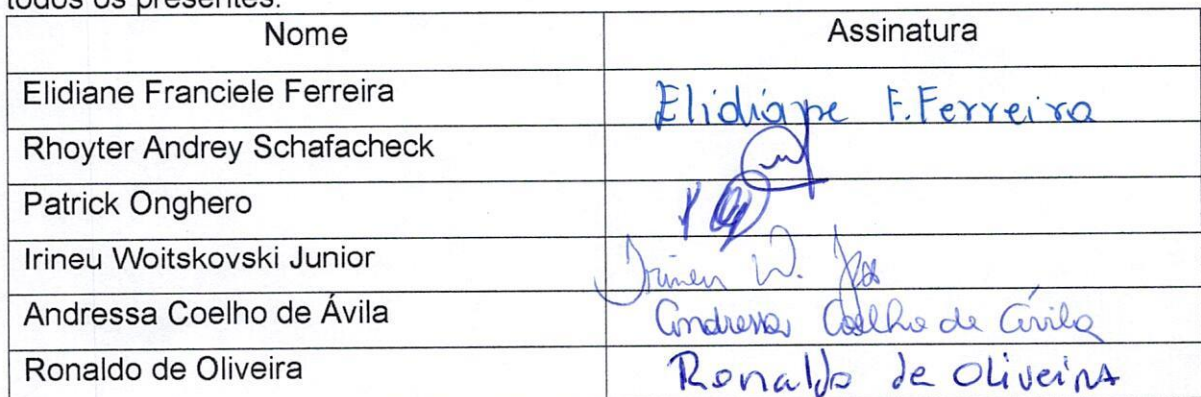 todos os presentes.
Nome Assinatura
Elidiane Franciele Ferreira Elidiane F. Ferreira
Rhoyter Andrey Schafacheck
Patrick Onghero
Irineu Woitskovski Junior Irineu W. Jr
Andressa Coelho de Ávila Andressa Coelho de Ávila
Ronaldo de Oliveira Ronaldo de Oliveira